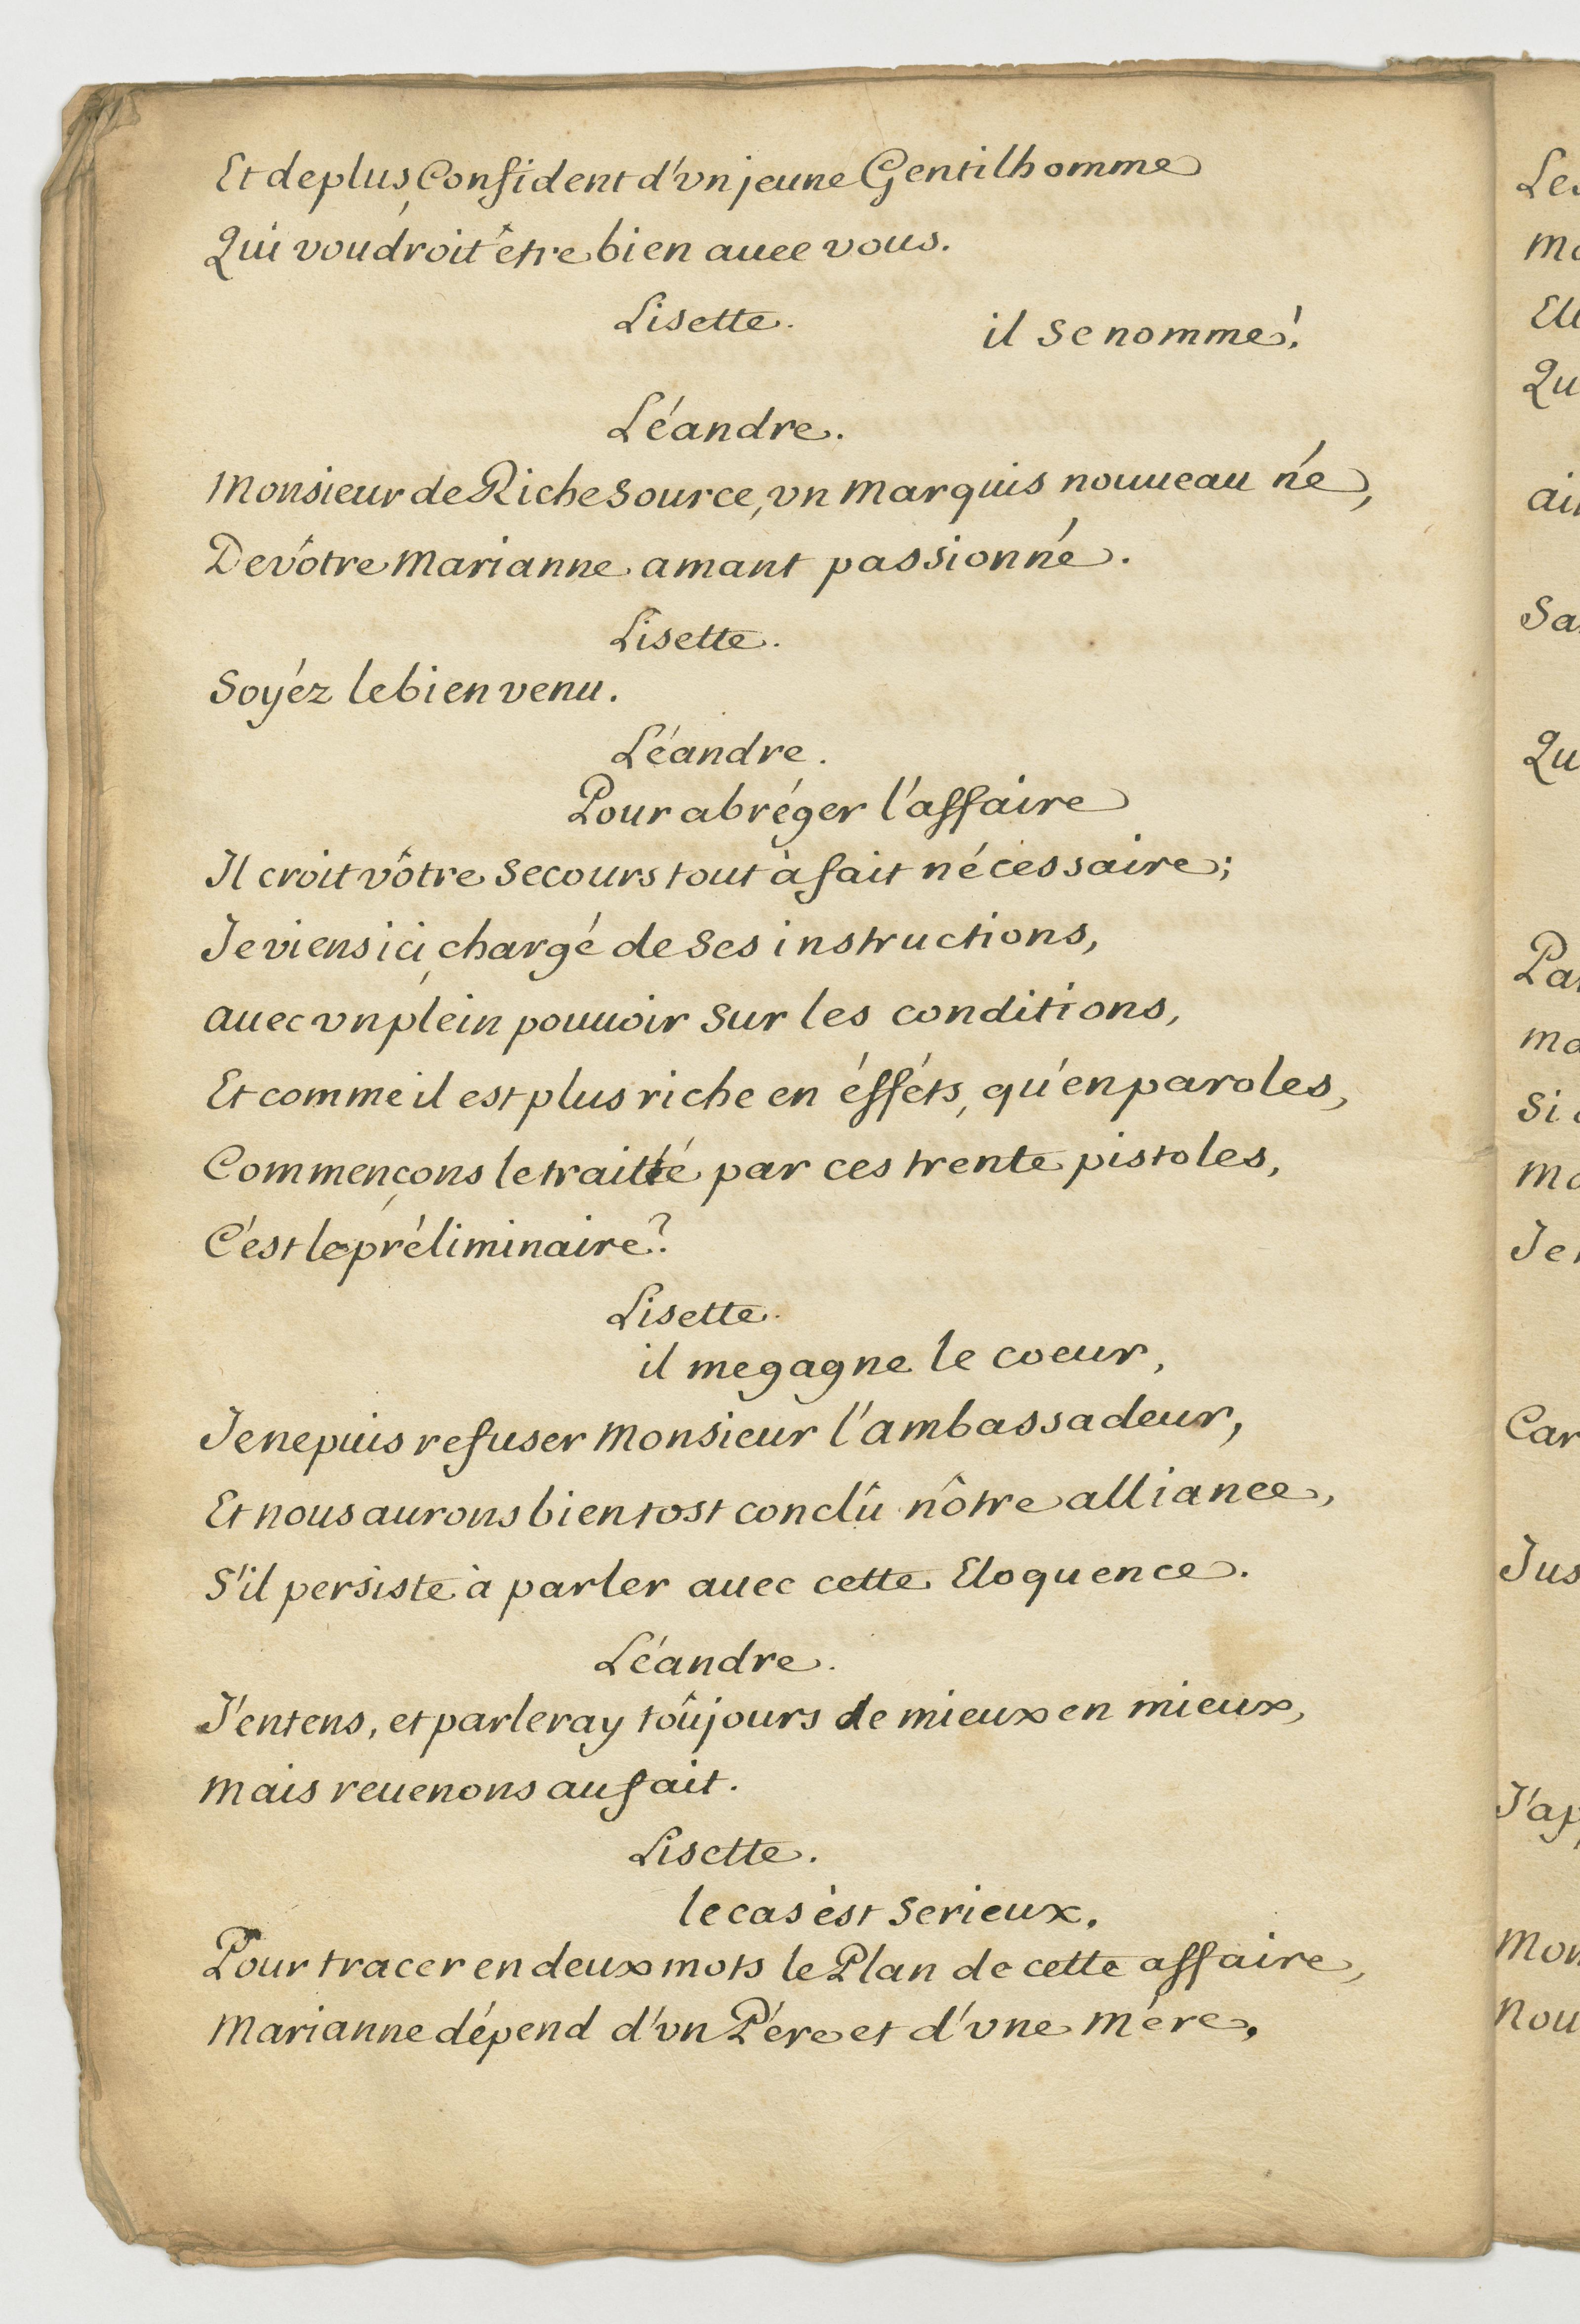 Et de plus, Confident d'vn jeune Gentilhomme
Qui voudroit être bien auec vous.
Lisette.
il se nomme!
Léandre.
Monsieur de Riche Source, vn marquis nouueau né,
De vôtre Marianne amant passionné.
Lisette.
Soyéz le bien venu.
Léandre.
Pour abréger l'affaire
Il croit vôtre secours tout à fait nécessaire;
Je viens ici, chargé de ses instructions,
auec vn plein pouuoir sur les conditions,
Et comme il est plus riche en éfféts, qu'en paroles,
Commençons le traitté par ces trente pistoles,
C'est le préliminaire?
Lisette.
il me gagne le coeur,
Je ne puis refuser Monsieur l'ambassadeur,
Et nous aurons bien tost conclû nôtre alliance,
S'il persiste à parler auec cette Eloquence.
Léandre.
J'entens, et parleray toûjours de mieux en mieux,
mais reuenons au fait.
Lisette.
le cas èst serieux.
Pour tracer en deux mots le Plan de cette affaire,
Marianne dépend d'vn Pére et d'vne mére,